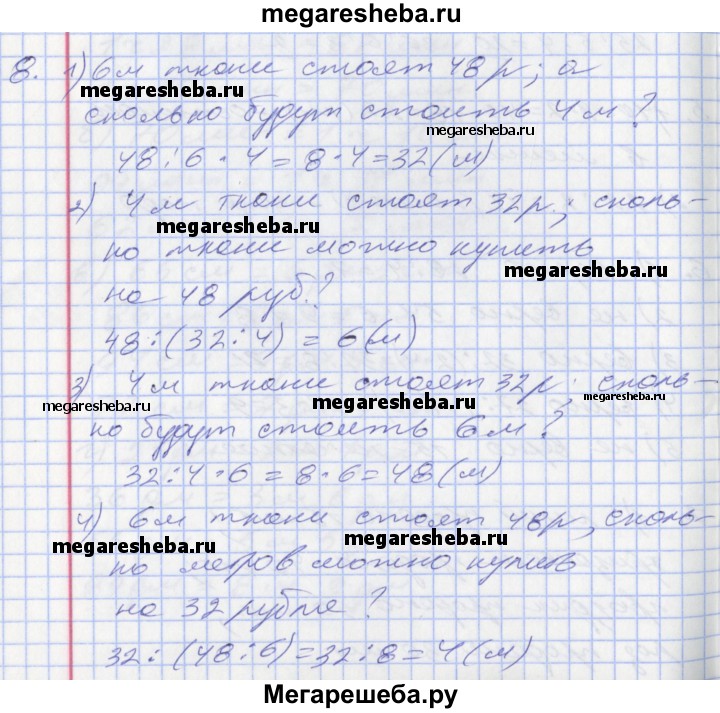 megaresheba.ru
8. 1) 6м ткани стоят 48 р; а
megaresheba.ru
сколько будут стоить 4 м?
megaresheba.ru
48:6·4=8·4=32(м)
2) 4м ткани стоят 32р.; сколь-
megaresheba.ru
ко ткани можно купить
megaresheba.ru
на 48 руб.?
48:(32:4) = 6(м)
3) 4м ткани стоят 32р; сколь-
megaresheba.ru megaresheba.ru megaresheba.ru
ко будут стоить 6м?
32:4·6=8·6=48(м)
4) 6м ткани стоят 48р, сколь-
megaresheba.ru megaresheba.ru
ко метров можно купить
на 32 рубля?
32:(48:6)=32:8=4(м)
megaresheba.ru
Мегарешеба.ру